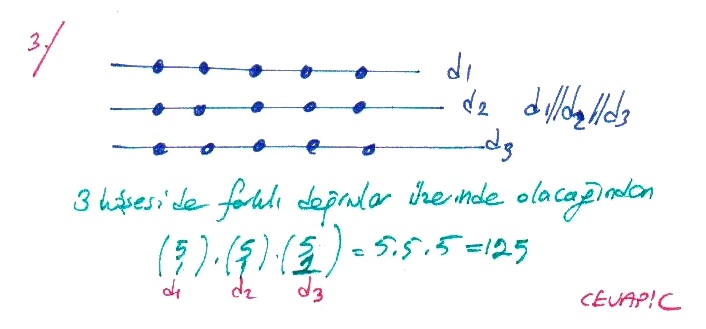 3/
d1
d2
d1//d2//d3
d3
3 köşesi de farklı doğrular üzerinde olacağından
(5 1).(5 1).(5 1) = 5.5.5 = 125
d1 d2 d3
CEVAP:C